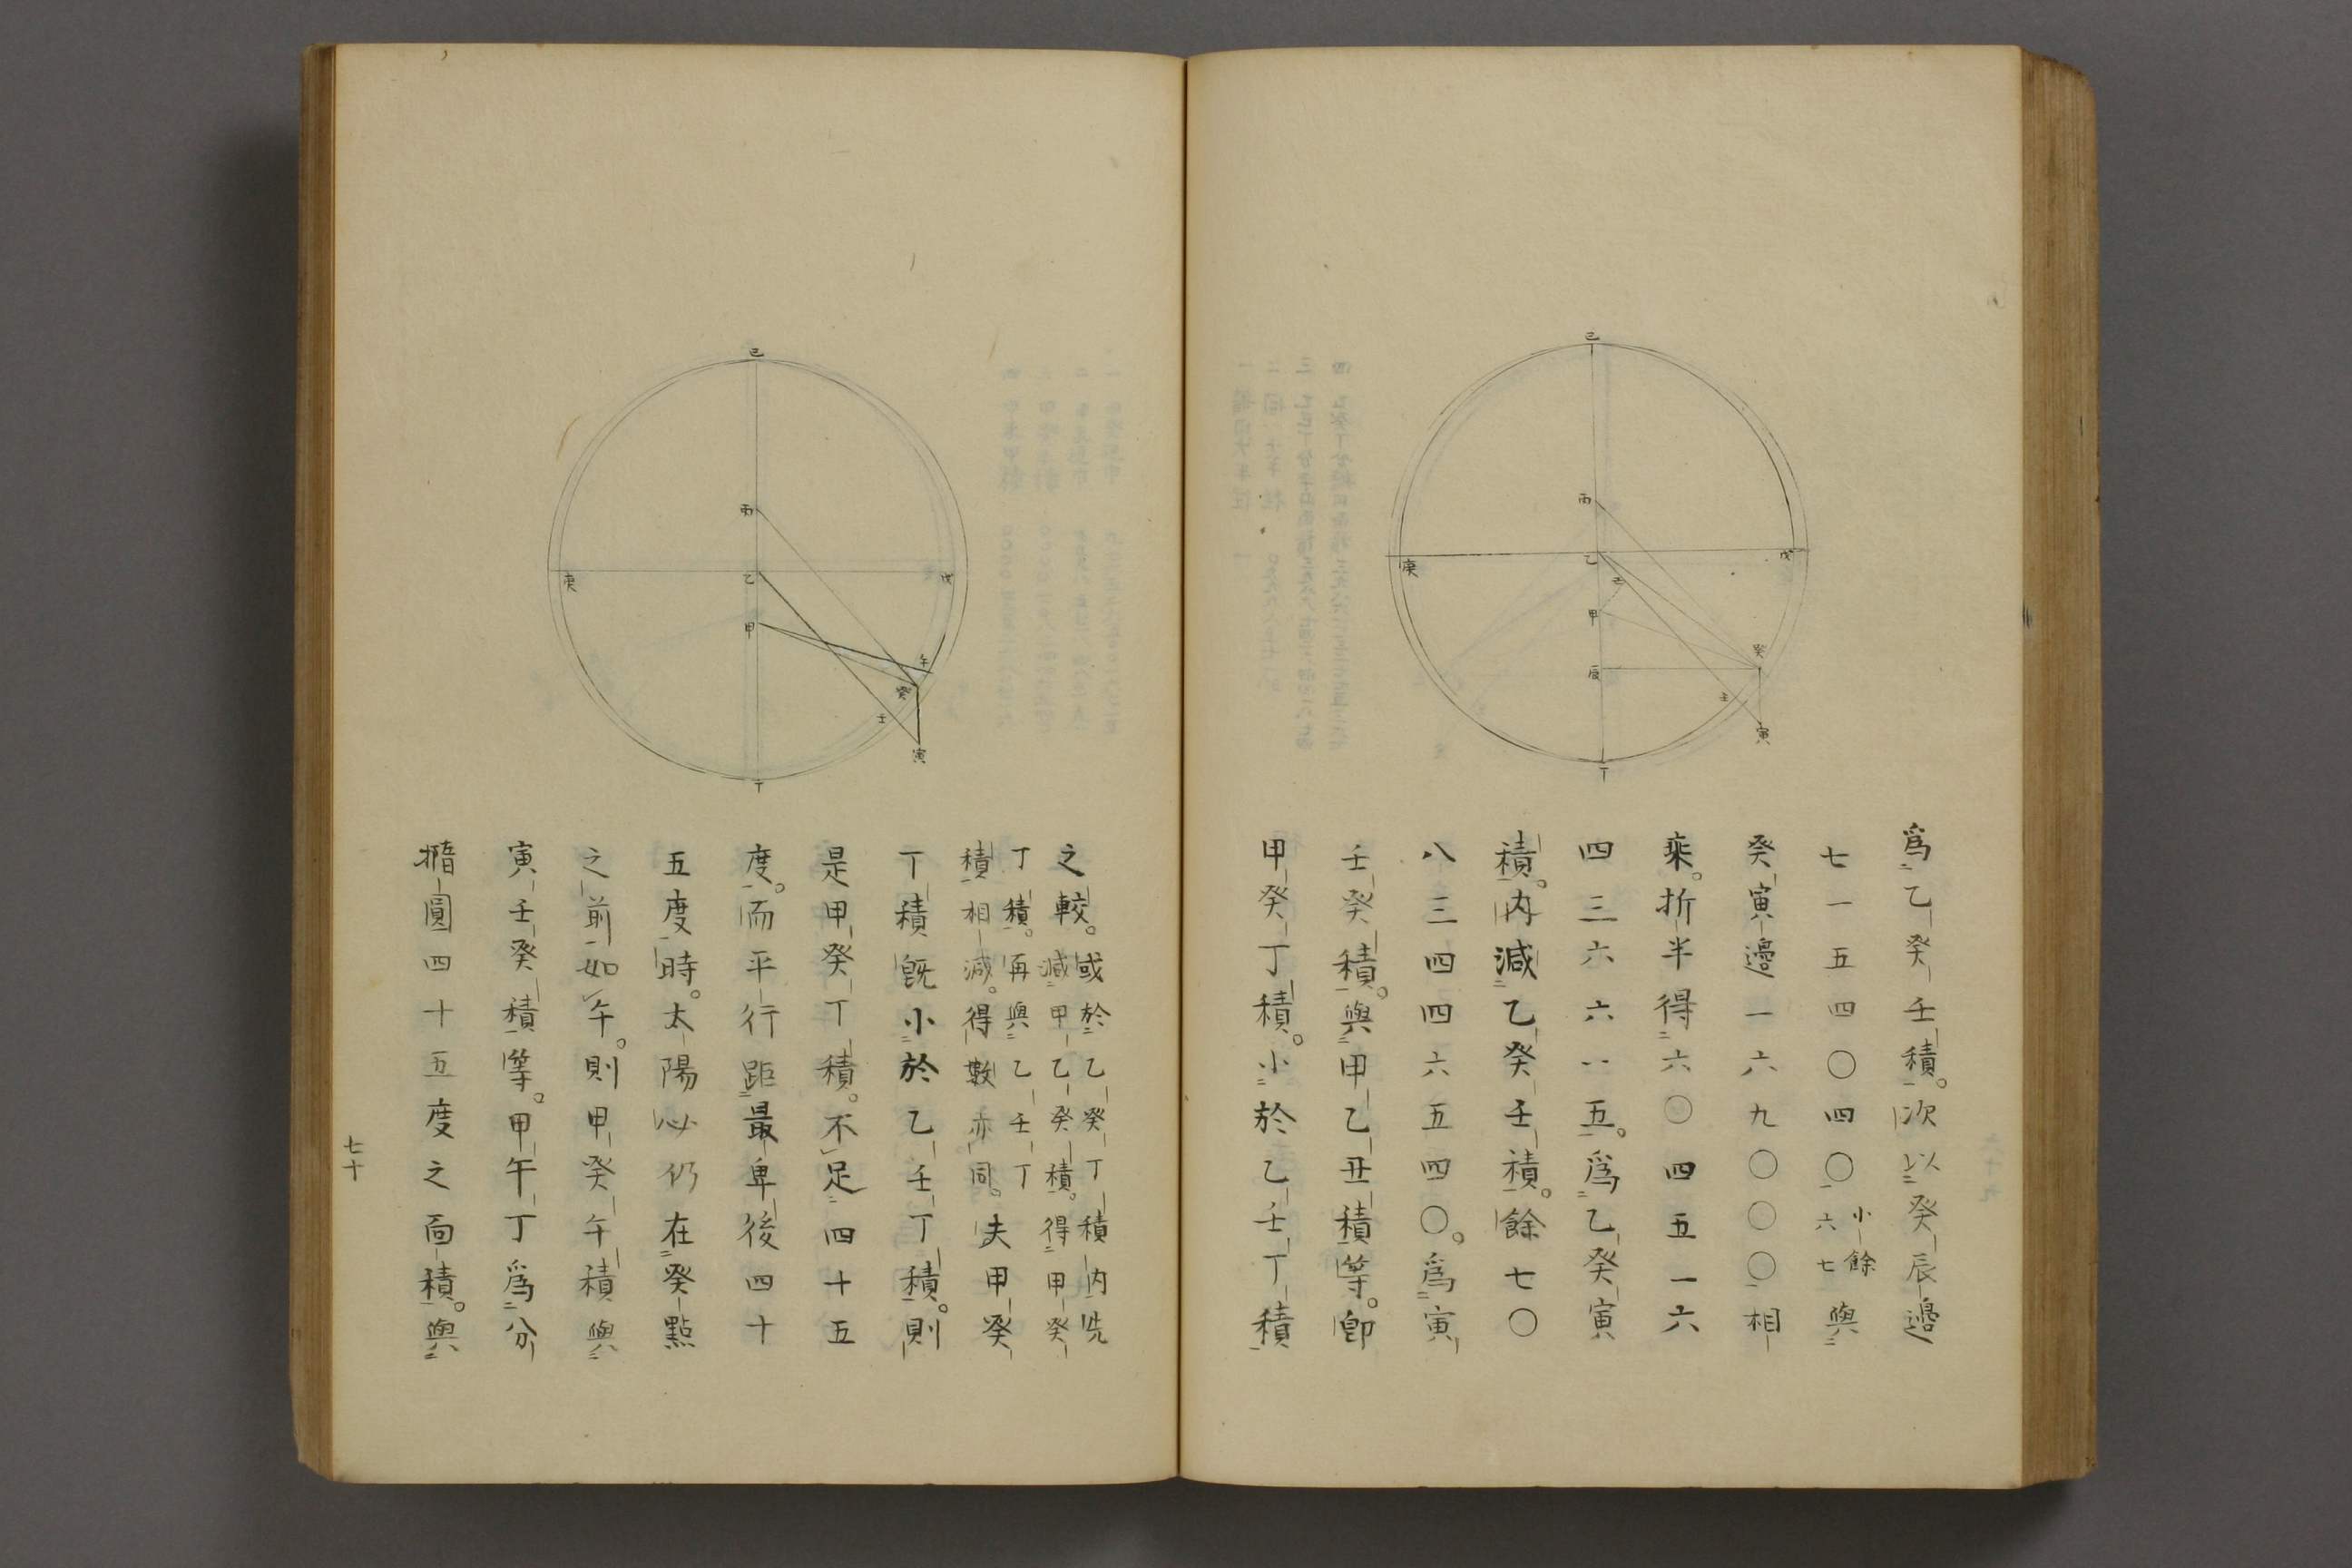 爲乙癸壬積。次以癸辰邊
七一五四〇四〇小餘六七與
癸寅邊一六九〇〇〇相
乘。折半得六〇四五一六
四三六六六八五。爲乙癸寅
積。内減乙癸壬積。餘七〇
八三四四六五四〇。爲寅
壬癸積。與甲乙丑積等。卽
甲癸丁積。小於乙壬丁積
己
丙
乙
丑
甲
辰
丁
戊
庚
癸
壬
寅
之較。或於乙癸丁積内先
減甲乙癸積。得甲癸
丁積。再與乙壬丁
積相減。得數亦同。夫甲癸
丁積旣小於乙壬丁積。則
是甲癸丁積。不足四十五
度。而平行距最卑後四十
五度時。太陽必仍在癸點
之前如午。則甲癸午積與
寅壬癸積等。甲午丁爲分
橢圓四十五度之面積。與
己
丙
乙
甲
丁
戊
庚
午
癸
壬
寅
七十